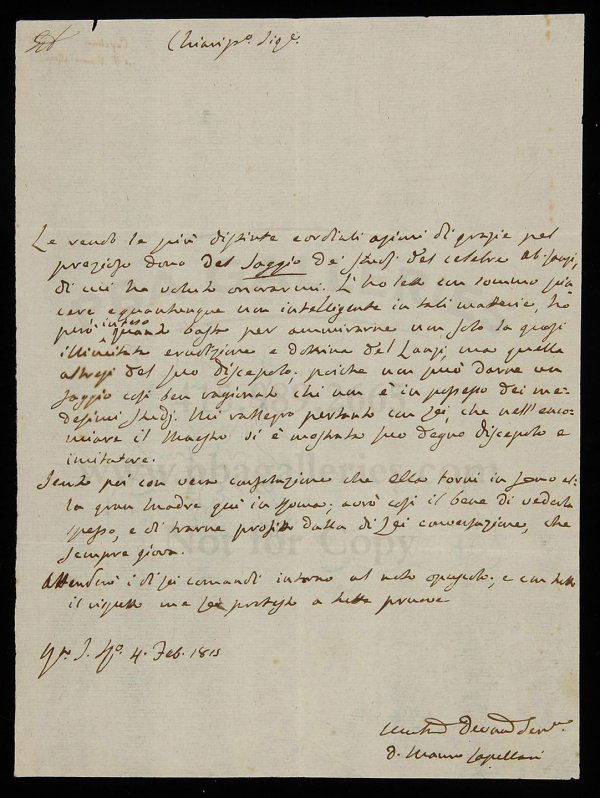 Chiariss.o Sig.e
Le rendo le più distinte e cordiali azioni di grazie pel
prezioso dono del Saggio de' studj del celebre Ab. Lanzi,
di cui ha voluto onorarmi. L'ho letto con sommo pia-
cere e quantunque non intelligente in tali materie, ho
però inteso quanto basta per ammirarne non solo la quasi
illimitata erudizione e dottrina del Lanzi, ma quella
altresì del suo discepolo; poichè non può darne un
saggio così ben ragionato chi non è in possesso dei me-
desimi studj. Mi rallegro pertanto con Lei, che nell'enco-
miare il Maestro si è mostrato suo degno discepolo e
imitatore.
Sento poi con vera consolazione che ella torni in seno al-
la gran madre qui in Roma; avrò così il bene di vederla
spesso, e di trarne profitto dalla di Lei conversazione, che
sempre giova.
Attenderò i di Lei comandi intorno al noto opuscolo; e con tutto
il rispetto me Le protesto a tutte pruove
4. Feb. 1815
Devmo Servre
D. Mauro Capellari
www.bbagalleries.com
Not for Copy